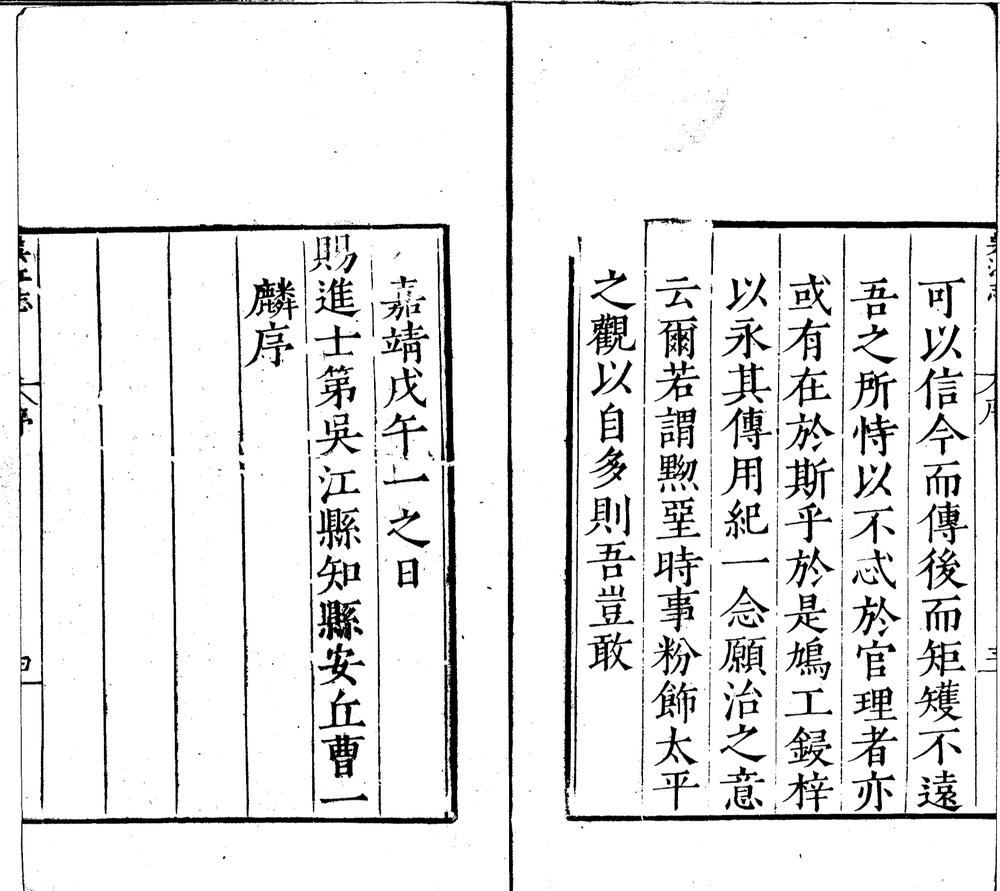 可以信今而傳後而矩矱不遠
吾之所恃以不忒於官理者亦
或有在於斯乎於是鳩工鋟梓
以永其傳用紀一念願治之意
云爾若謂黝堊時事粉飾太平
之觀以自多則吾豈敢
嘉靖戊午一之日
賜進士第吳江縣知縣安丘曹一
麟序
吳江志
序